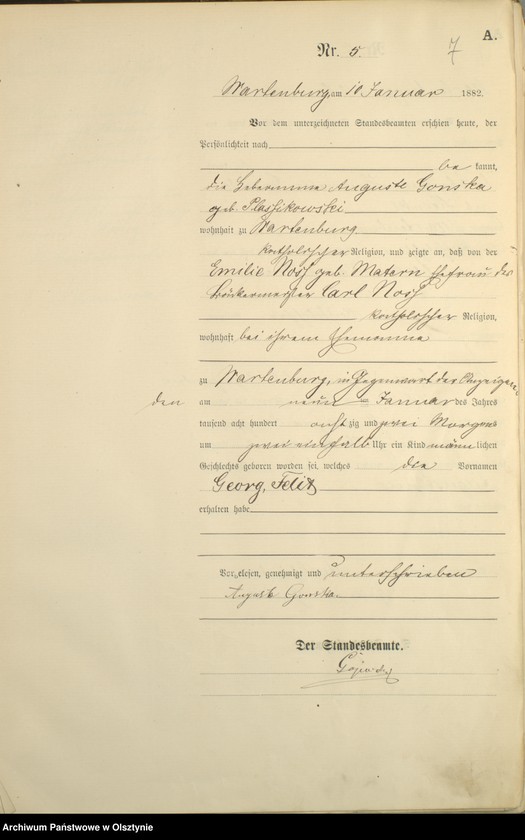 A.
7
Nr. 5.
Wartenburg am 10 Januar 1882.
Vor dem unterzeichneten Standesbeamten erschien heute, der
Persönlichkeit nach
be kannt,
die Hebeamme Auguste Gonska
geb. Plassikowski
wohnhaft zu Wartenburg
katholischer Religion, und zeigte an, daß von der
Emilie Nosh geb. Matern Ehefrau des
Bäckermeister Carl Nosh
katholischer Religion,
wohnhaft bei ihrem Ehemanne
zu Wartenburg, in Gegenwart der Anzeigen
den am neun Januar des Jahres
tausend acht hundert achtzig und zwei Morgens
um zwei einhalb Uhr ein Kind männlichen
Geschlechts geboren worden sei, welches die Vornamen
Georg, Felix
erhalten habe
Vorgelesen, genehmigt und unterschrieben
Auguste Gonska
Der Standesbeamte.
Archiwum Państwowe w Olsztynie